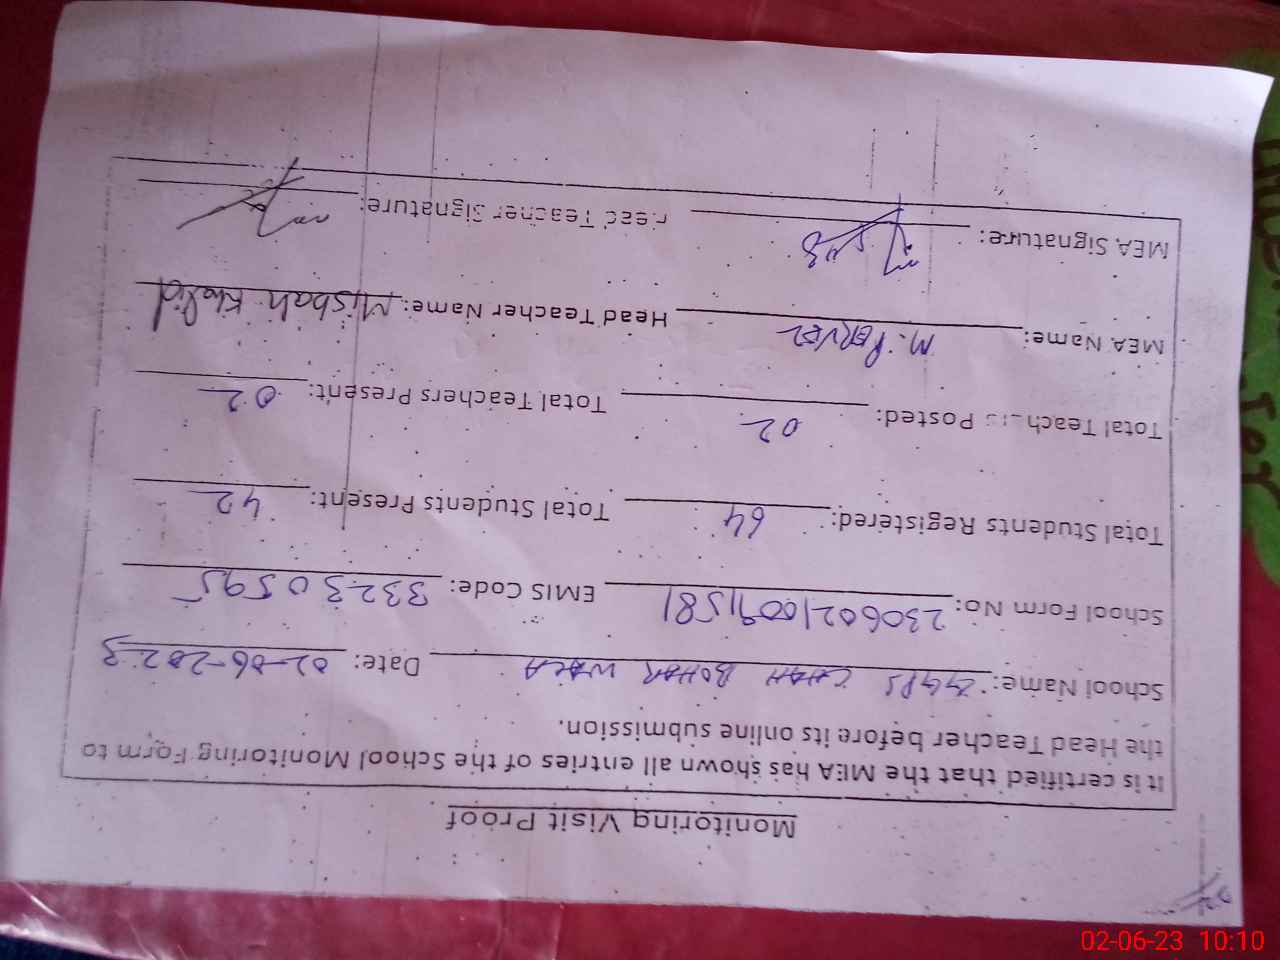 Monitoring Visit Proof
It is certified that the MEA has shown all entries of the School Monitoring Form to
the Head Teacher before its online submission.
School Name: GGPS CHAH BOHAR WALA Date: 02-06-2023
School Form No: 23060210091581 EMIS Code: 33230595
Total Students Registered: 64 Total Students Present: 42
Total Teachers Posted: 02 Total Teachers Present: 02
MEA Name: M. PERVEZ Head Teacher Name: Misbah Khalid
MEA Signature: Head Teacher Signature:
02-06-23 10:10